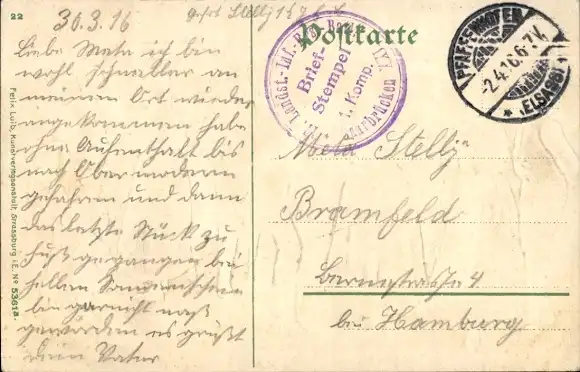 22
30.3.16
Postkarte
Liebe Meta ich bin
wohl schneller an
meinen Ort wieder
angekommen habe
ohne Aufenthalt bis
nach Obermodern
gefahren und dann
das letzte Stück zu
Fuß gegangen bei
hellen Sonnenschein
bin garnicht naß
geworden es grüßt
dein Vater
Felix Luib, Kunstverlagsanstalt, Strassburg i.E. No 5361a.
Landst. Inf.
Brief-
Stempel
1. Komp.
Saarbrücken
PFAFFENHOFEN
-2.4.16.6-7V.
(ELSASS)
Meta Stellj
Bramfeld
4
bei Hamburg